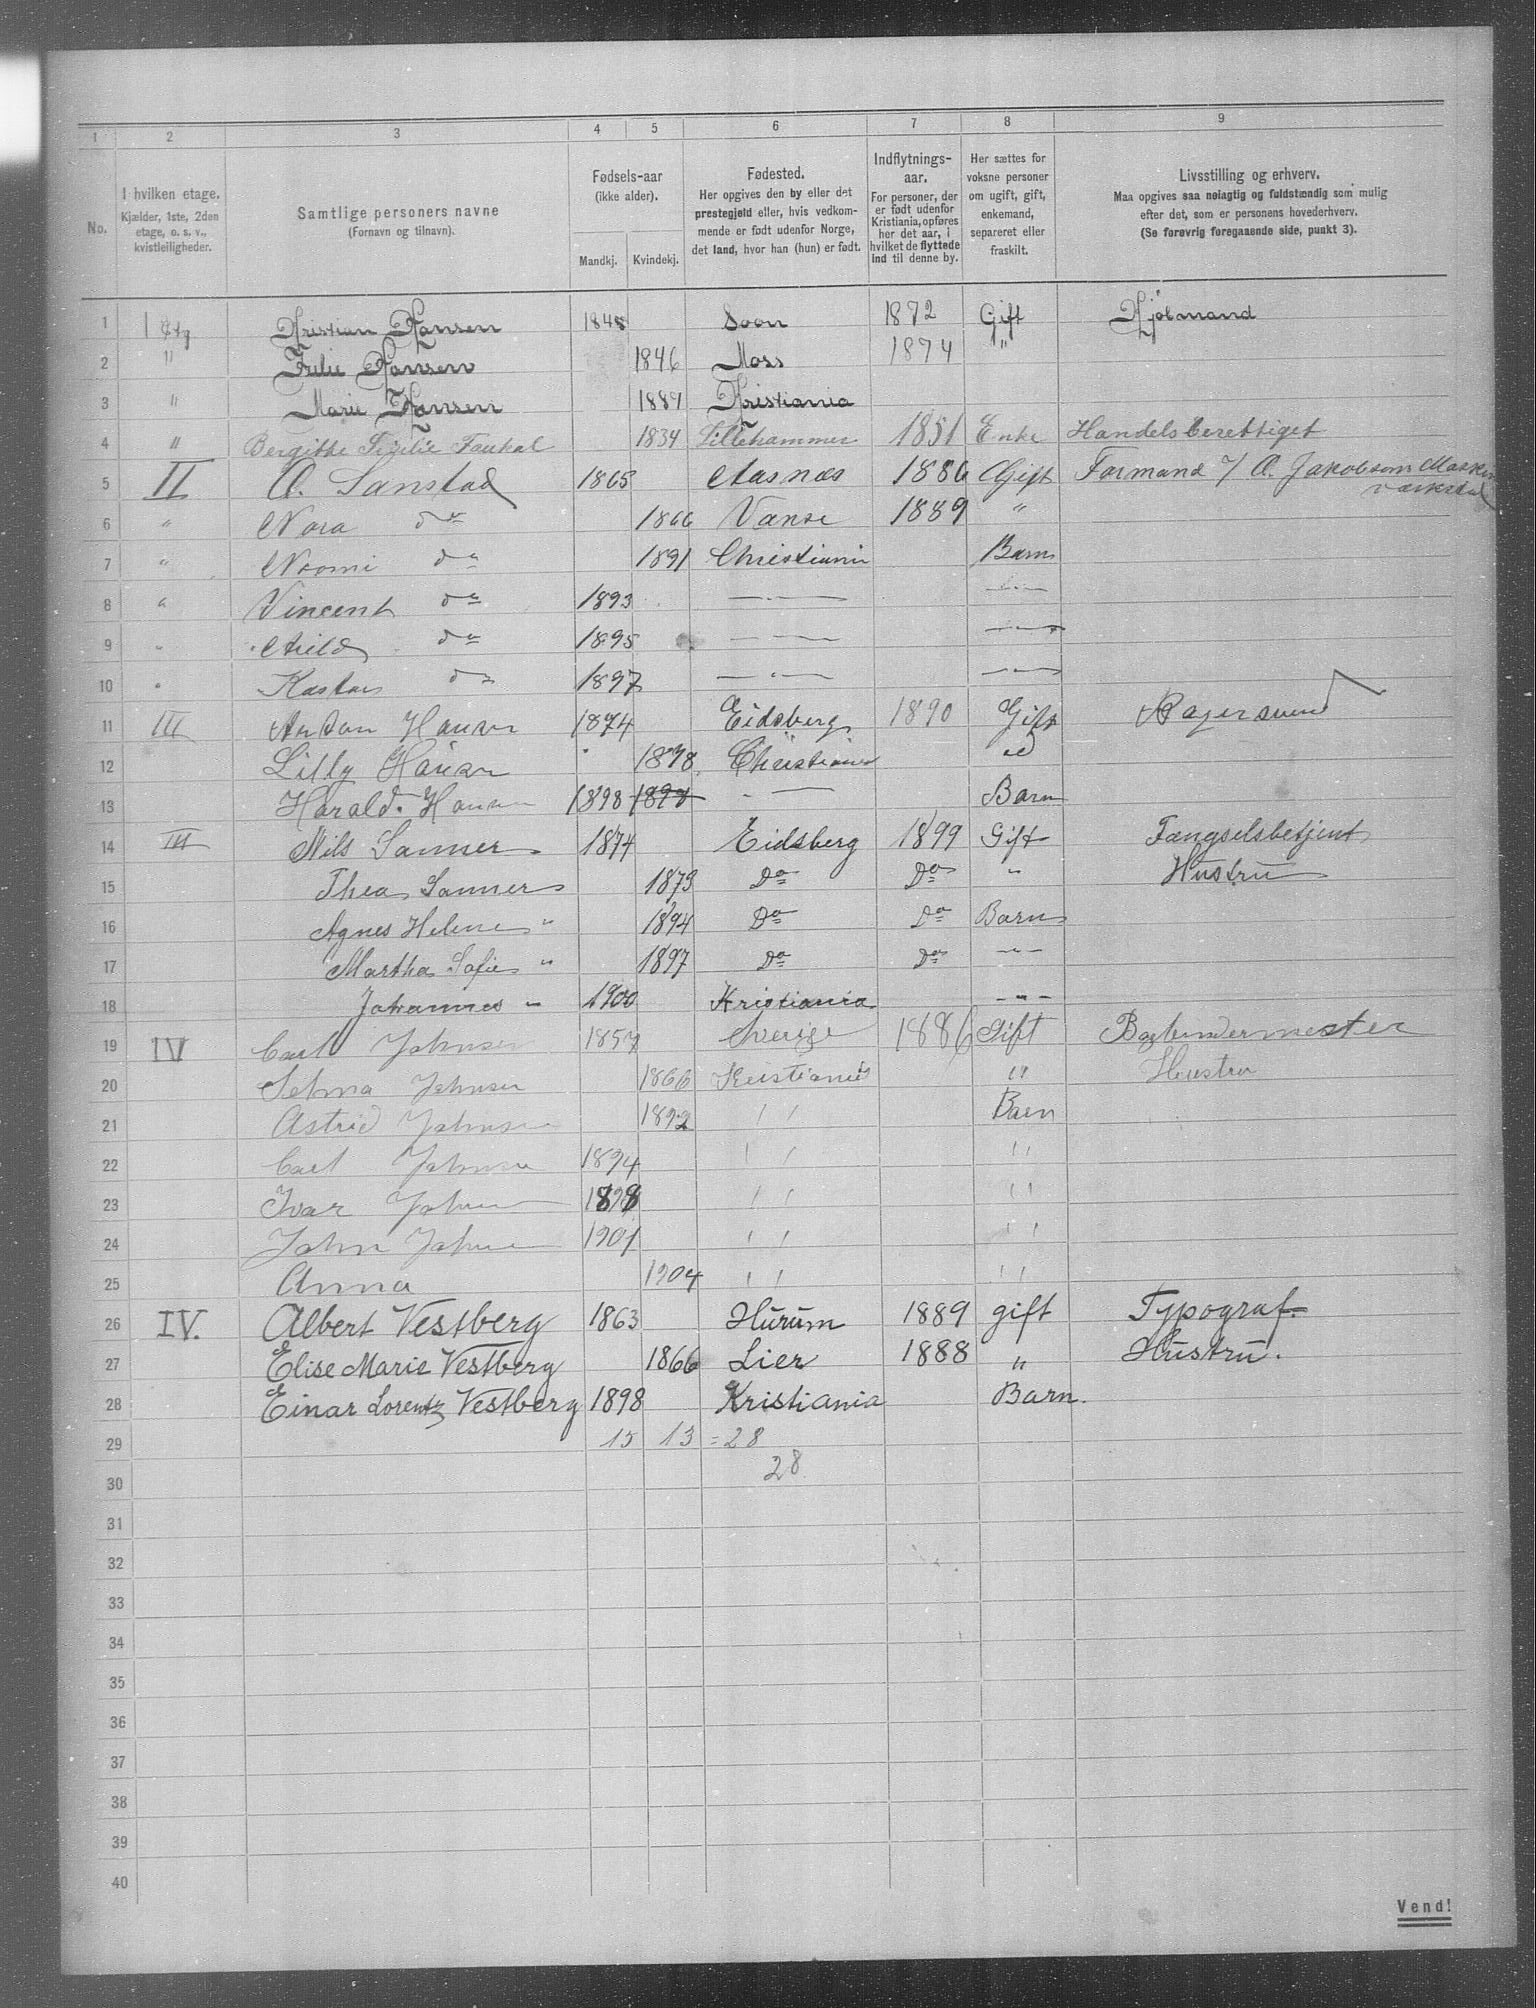 1 2 3 4 5 6 7 8 9
No. I hvilken etage. Kjælder, 1ste, 2den etage, o. s. v., kvistleiligheder. Samtlige personers navne (Fornavn og tilnavn). Fødsels-aar (ikke alder). Mandkj. Kvindekj. Fødested. Her opgives den by eller det prestegjeld eller, hvis vedkommende er født udenfor Norge, det land, hvor han (hun) er født. Indflytnings-aar. For personer, der er født udenfor Kristiania, opføres her det aar, i hvilket de flyttede ind til denne by. Her sættes for voksne personer om ugift, gift, enkemand, separeret eller fraskilt. Livsstilling og erhverv. Maa opgives saa nølagtig og fuldstændig som mulig efter det, som er personens hovederhverv. (Se forøvrig foregaaende side, punkt 3).
1 1 Etg Kristian Hansen 1848 Soon 1872 Gift Kjöbmand
2 " Hansen 1846 Moss 1874 "
3 " Marie Hansen Kristiania
4 " Bergitte 1834 Lillehammer 1851 Enke Handelsberettiget
5 II O. Sanstad 1865 Aasnæs 1886 Gift Formand / O. Jakobsens Maskin værksted
6 " Nora do 1866 Vanse 1889 "
7 " Noomi do 1891 Christiania Barn
8 " Vincent do 1893 — " — — " —
9 " do 1895 — " — — " —
10 " do 1897 — " — — " —
11 III Anton Hansen 1874 Eidsberg 1890 Gift
12 Lilly Hansen 1878 Christiania
13 Harald Hansen 1898 — " — Barn
14 III Nils Sanner 1874 Eidsberg 1899 Gift Fængselsbetjent
15 Thea Sanner 1873 Do Do " Hustru
16 Agnes Helene " 1894 Do Do Barn
17 Martha Sofie " 1897 Do Do — " —
18 Johannes " 1900 Kristiania — " —
19 IV Carl Johnsen 1857 Sverige 1886 Gift Bogbindermester
20 Selma Johnsen 1866 Kristiania " Hustru
21 Astrid Johnsen 1892 " Barn
22 Carl Johnsen 1894 " "
23 Ivar Johnsen 1898 " "
24 John Johnsen 1901 " "
25 Anna 1904 " "
26 IV. Albert Vestberg 1863 Hurum 1889 gift Typograf.
27 Elise Marie Vestberg 1866 Lier 1888 " Hustru.
28 Einar Lorentz Vestberg 1898 Kristiania Barn.
29 15 13 = 28
30 28
31
32
33
34
35
36
37
38
39
40
Vend!